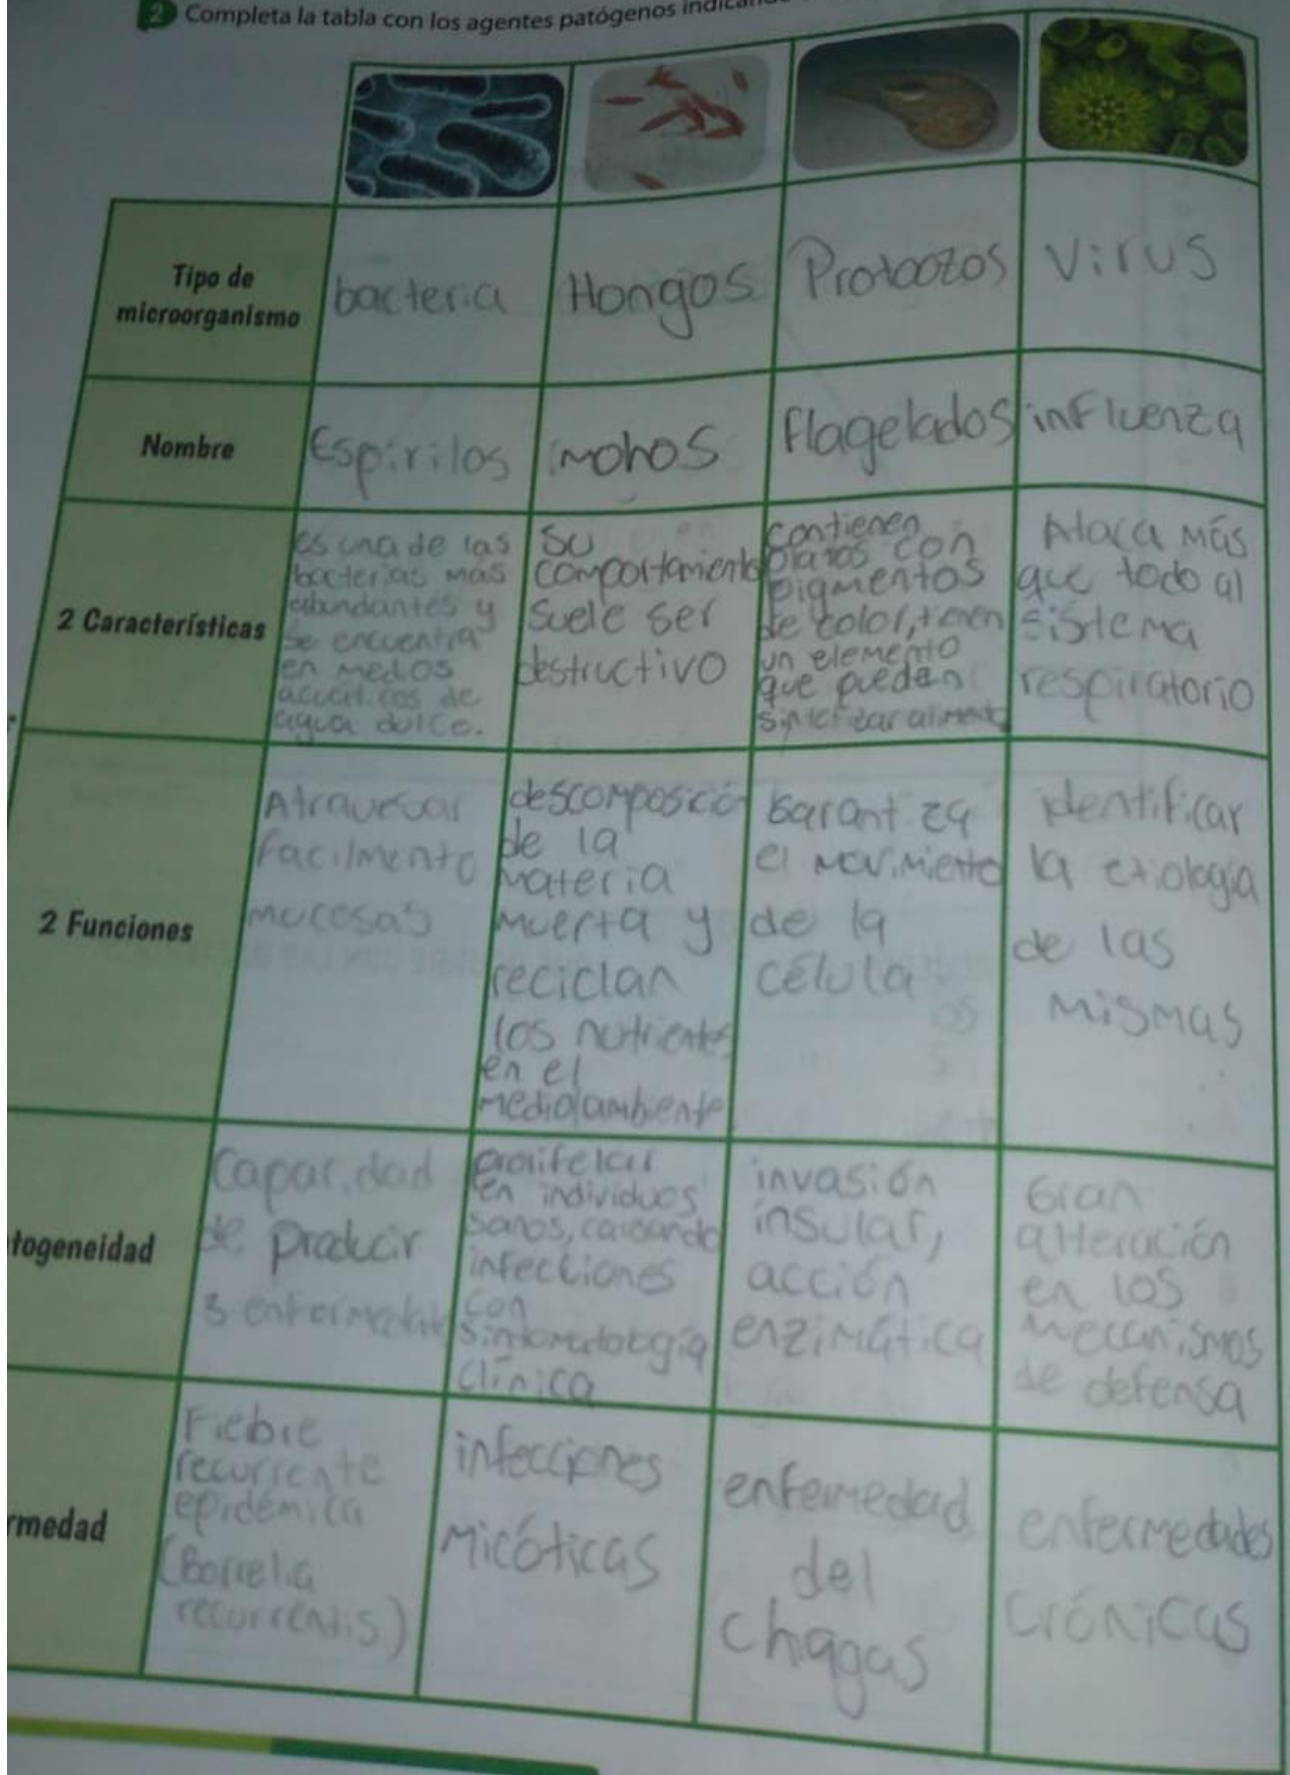 2 Completa la tabla con los agentes patógenos
Tipo de
microorganismo
bacteria
Hongos
Protoozos
Virus
Nombre
Espirilos
mohos
flagelados
influenza
2 Características
es una de las
bacterias mas
abundantes y
se encuentra
en medios
acuaticos de
agua dulce.
Su
comportamiento
suele ser
destructivo
contienen
con
pigmentos
de color, tienen
un elemento
que pueden
sintetizar aliment
Ataca más
que todo al
sistema
respiratorio
2 Funciones
Atravesar
facilmento
mucosas
descomposició
de la
materia
muerta y
reciclan
los nutrientes
en el
medio ambiente
Garantiza
el movimiento
de la
célula
identificar
la etiología
de las
mismas
togeneidad
Capacidad
de producir
enfermedade
prolifelar
en individuos
sanos, causando
infecciones
con
sintomatología
clínica
invasión
insular,
acción
enzimática
Gran
alteración
en los
mecanismos
de defensa
rmedad
Fiebre
recurrente
epidémica
(Borrelia
recurrentis)
infecciones
Micóticas
enfermedad
del
chagas
enfermedades
crónicas